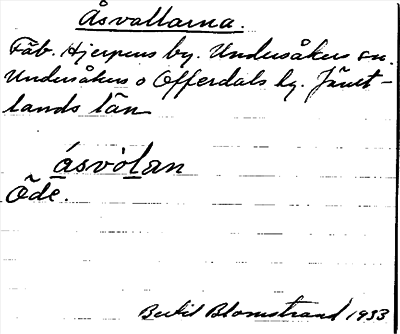 Åsvallarna.
Fäb. Hjerpens by. Undersåkers sn.
Undersåkers o Offerdals tg. Jämt-
lands län
åsvòlan
Öde.
Bertil Blomstrand 1933